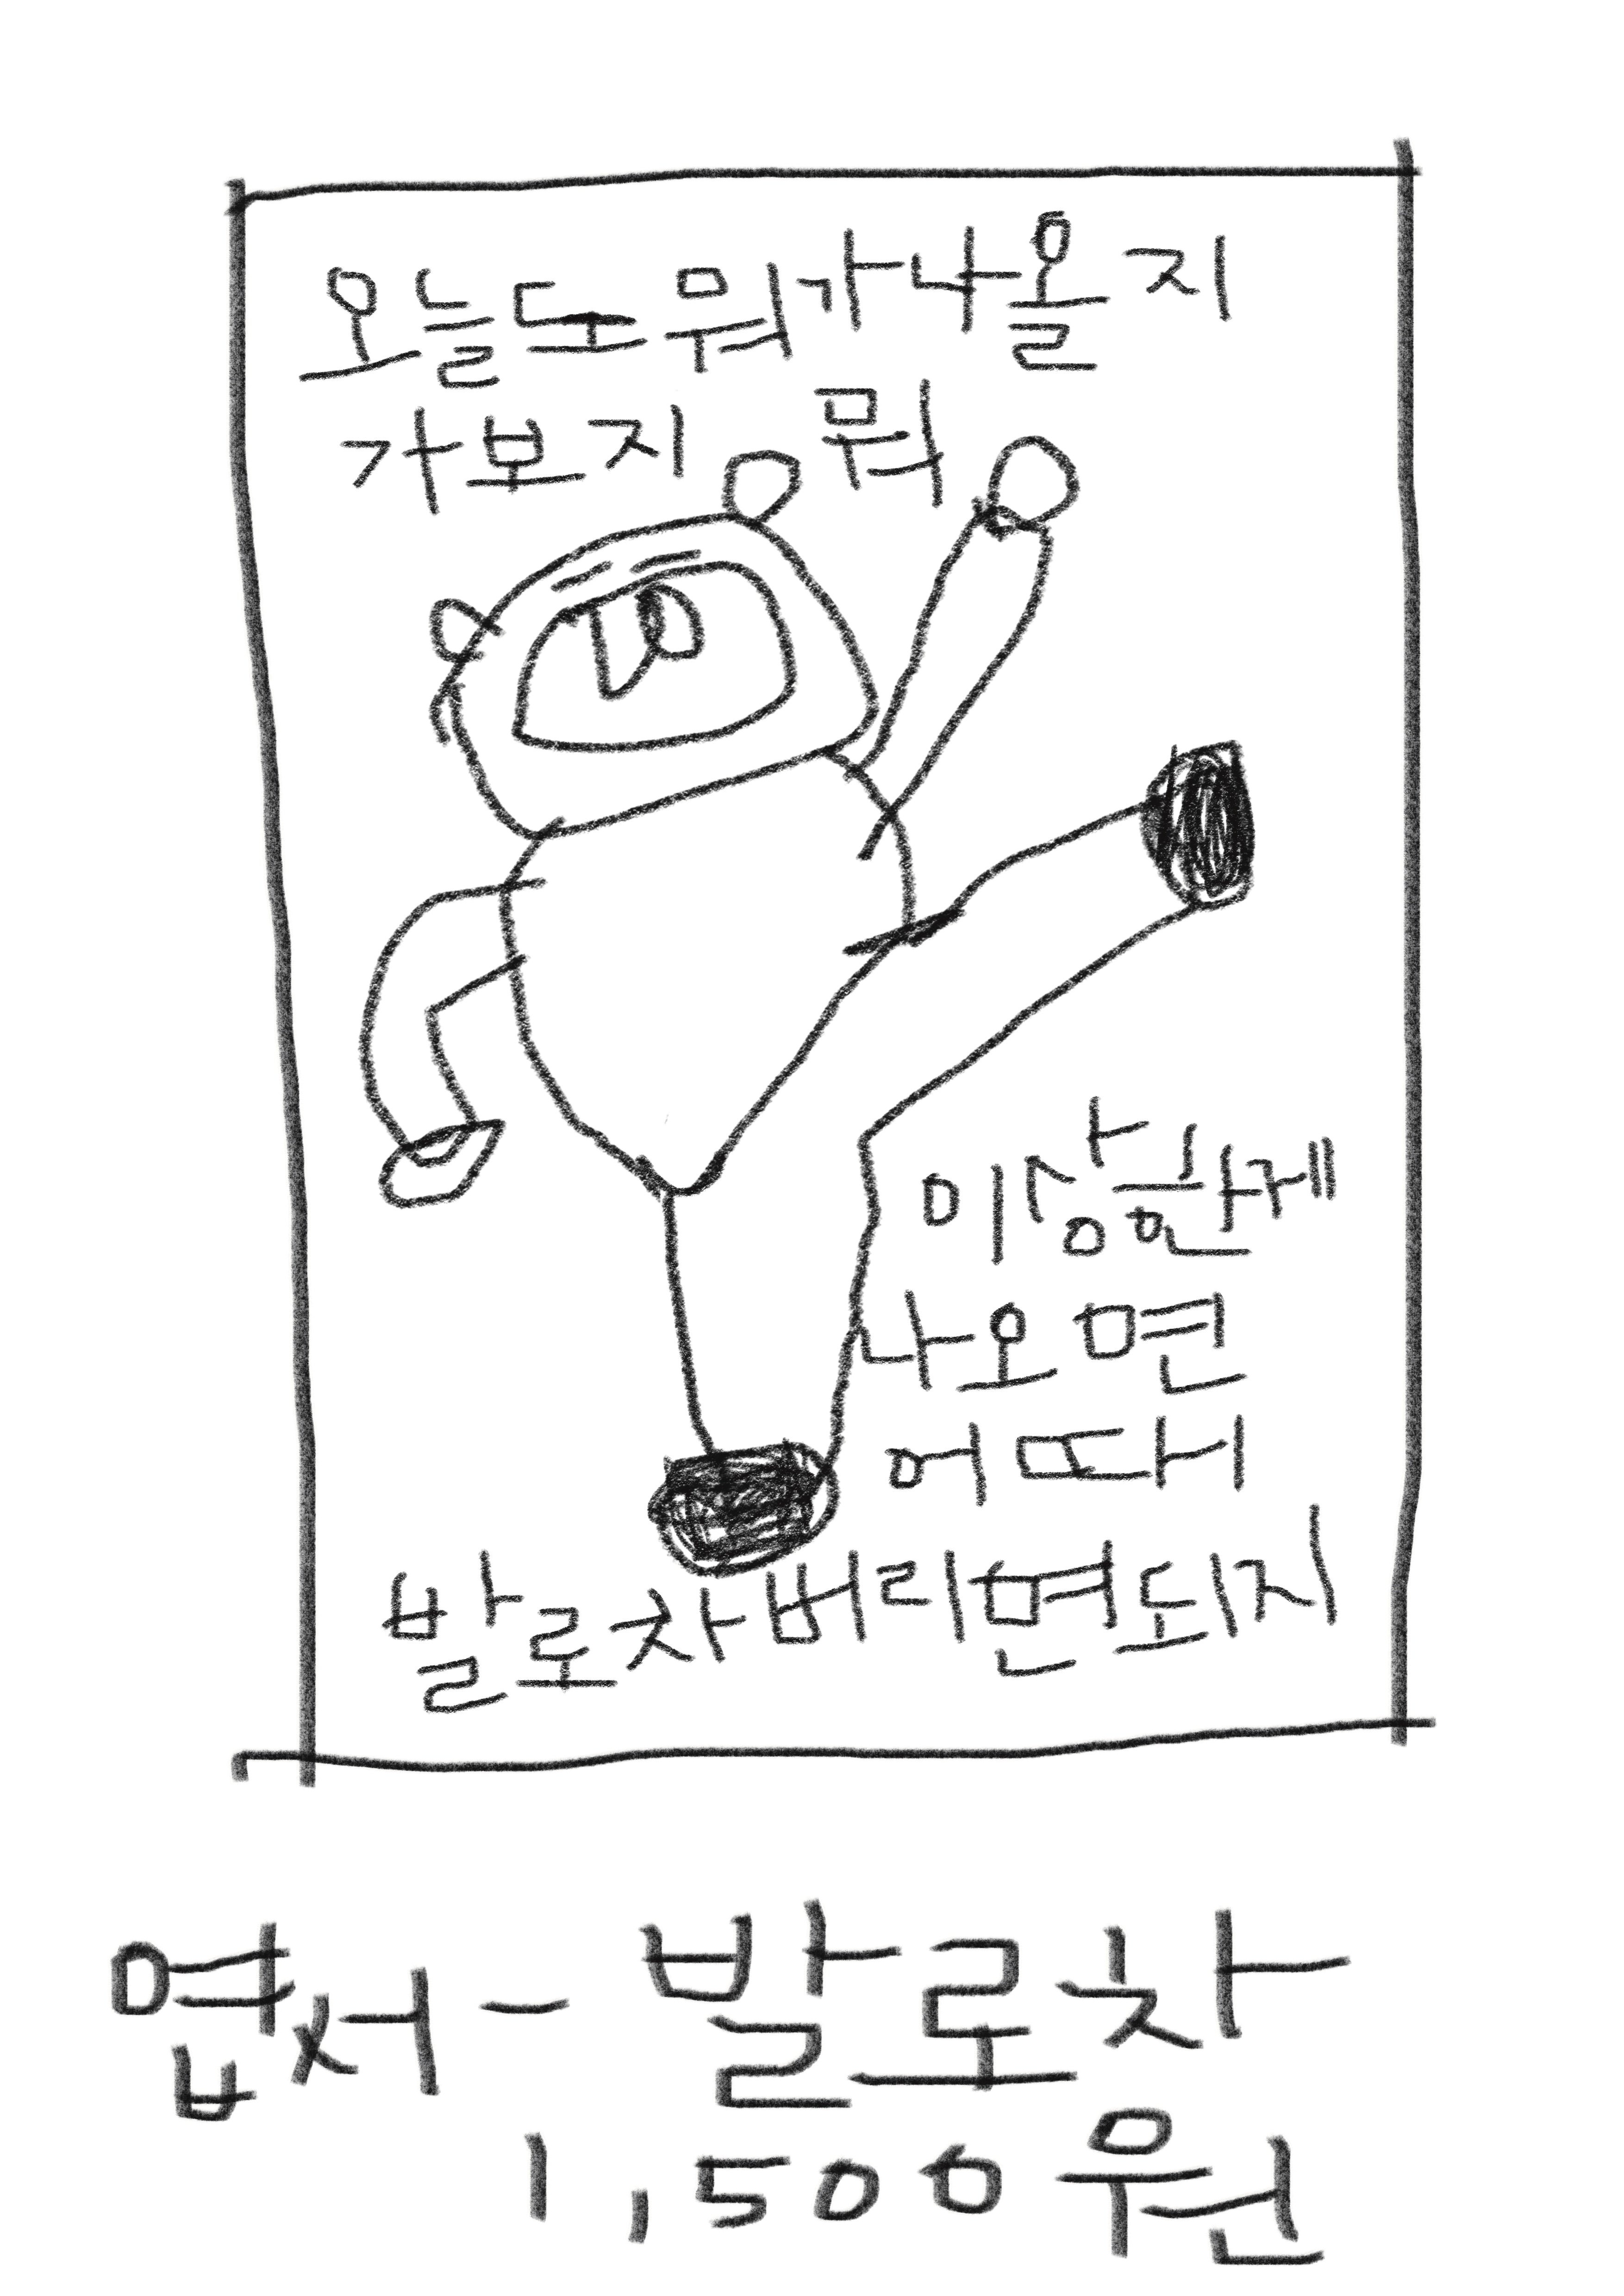 오늘도 뭐가 나올지
가보지 뭐
이상한게
나오면
어때
발로차버리면되지
엽서 - 발로차
1,500원